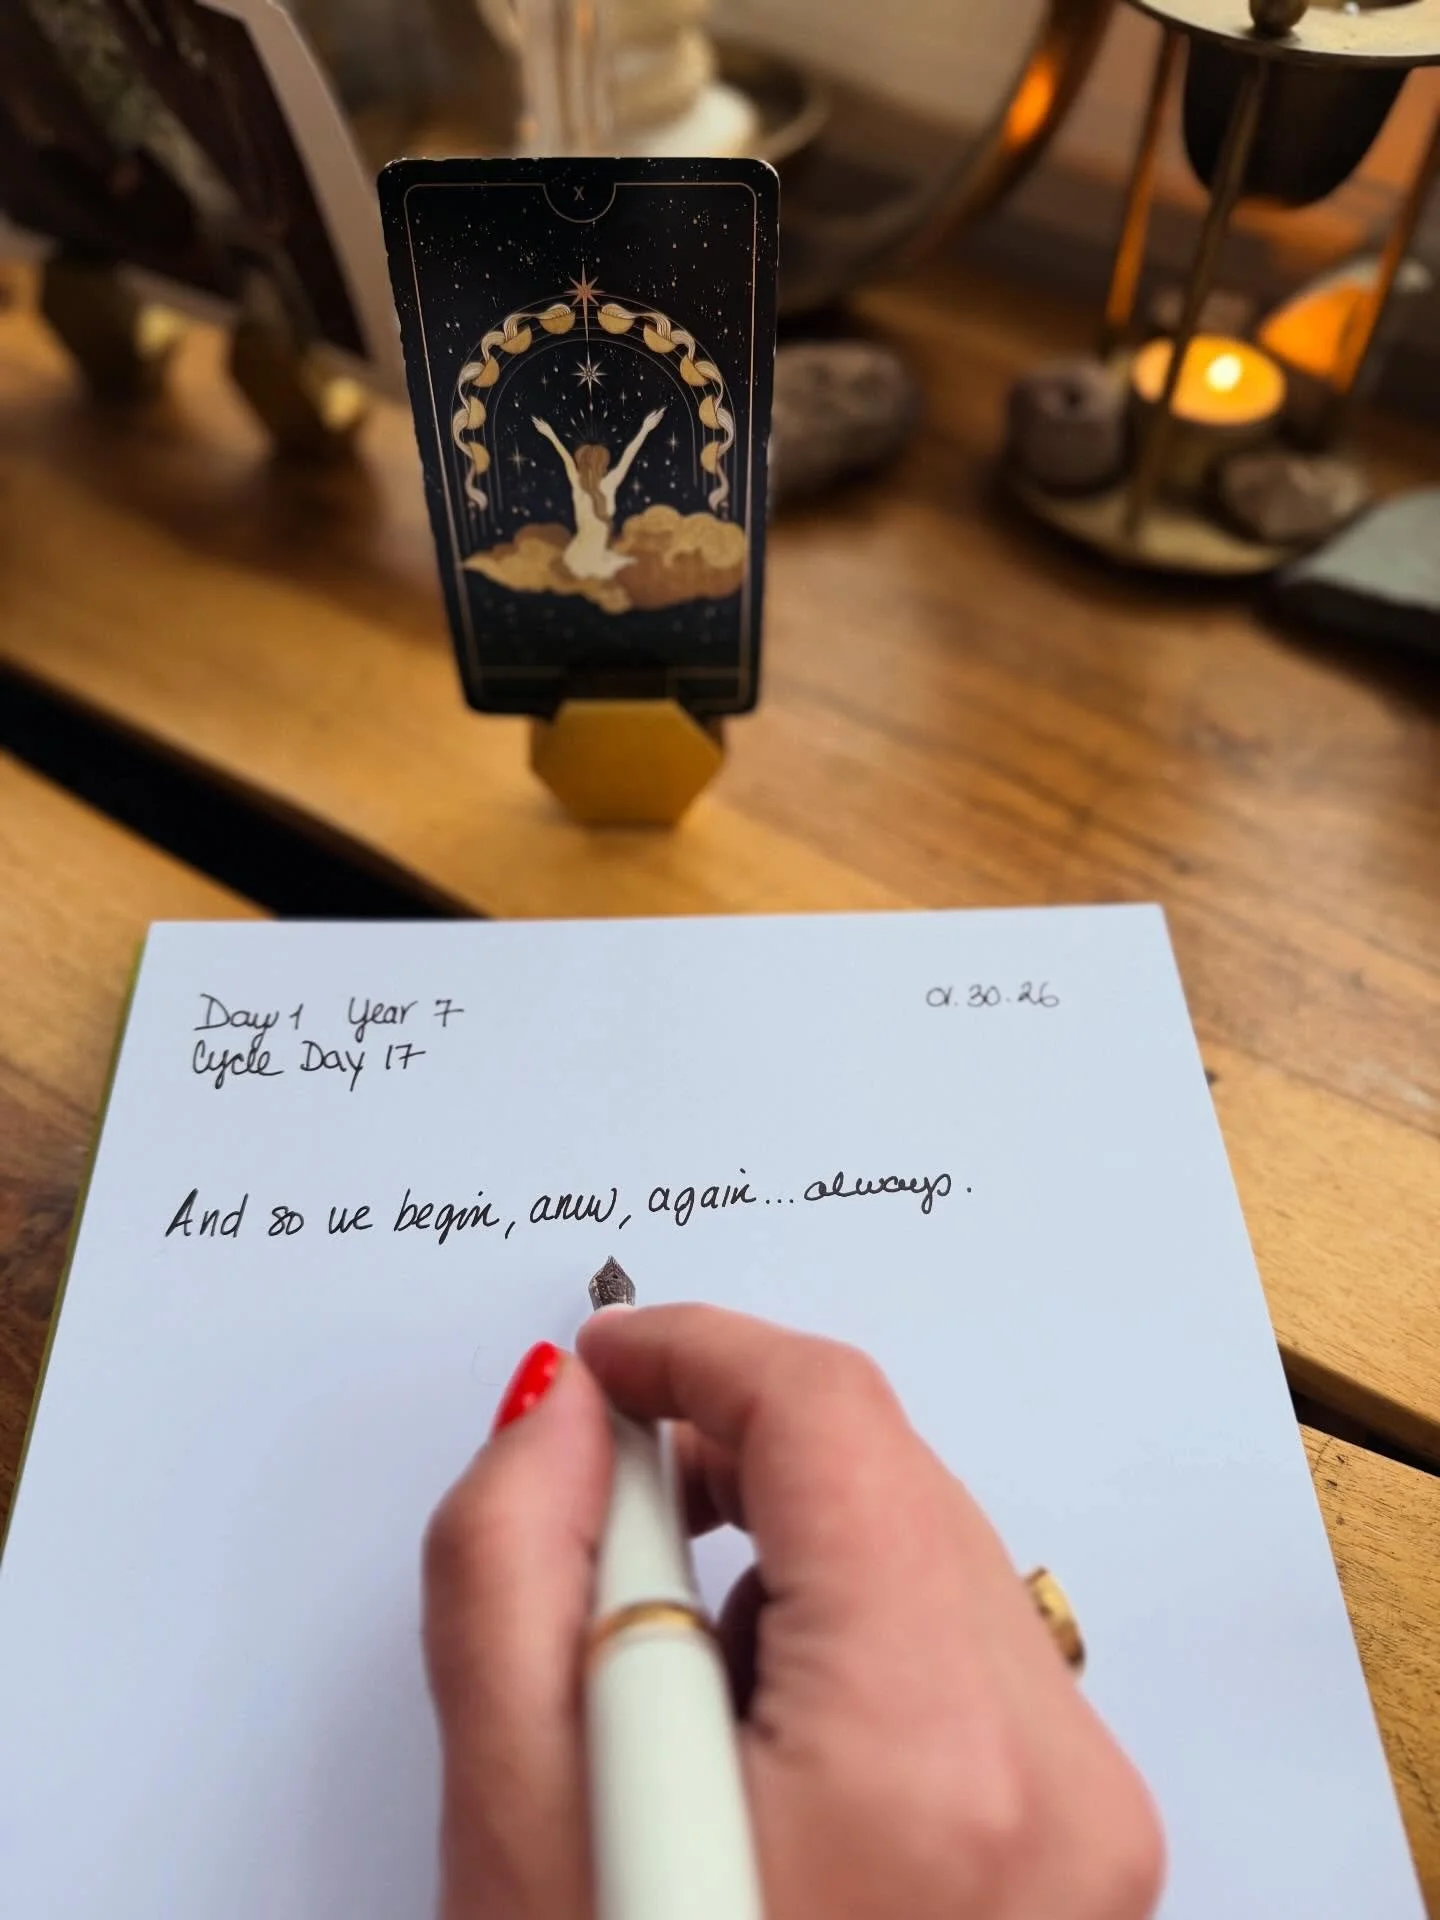 X
Day 1 Year 7 01.30.26
Cycle Day 17
And so we begin, anew, again... always.